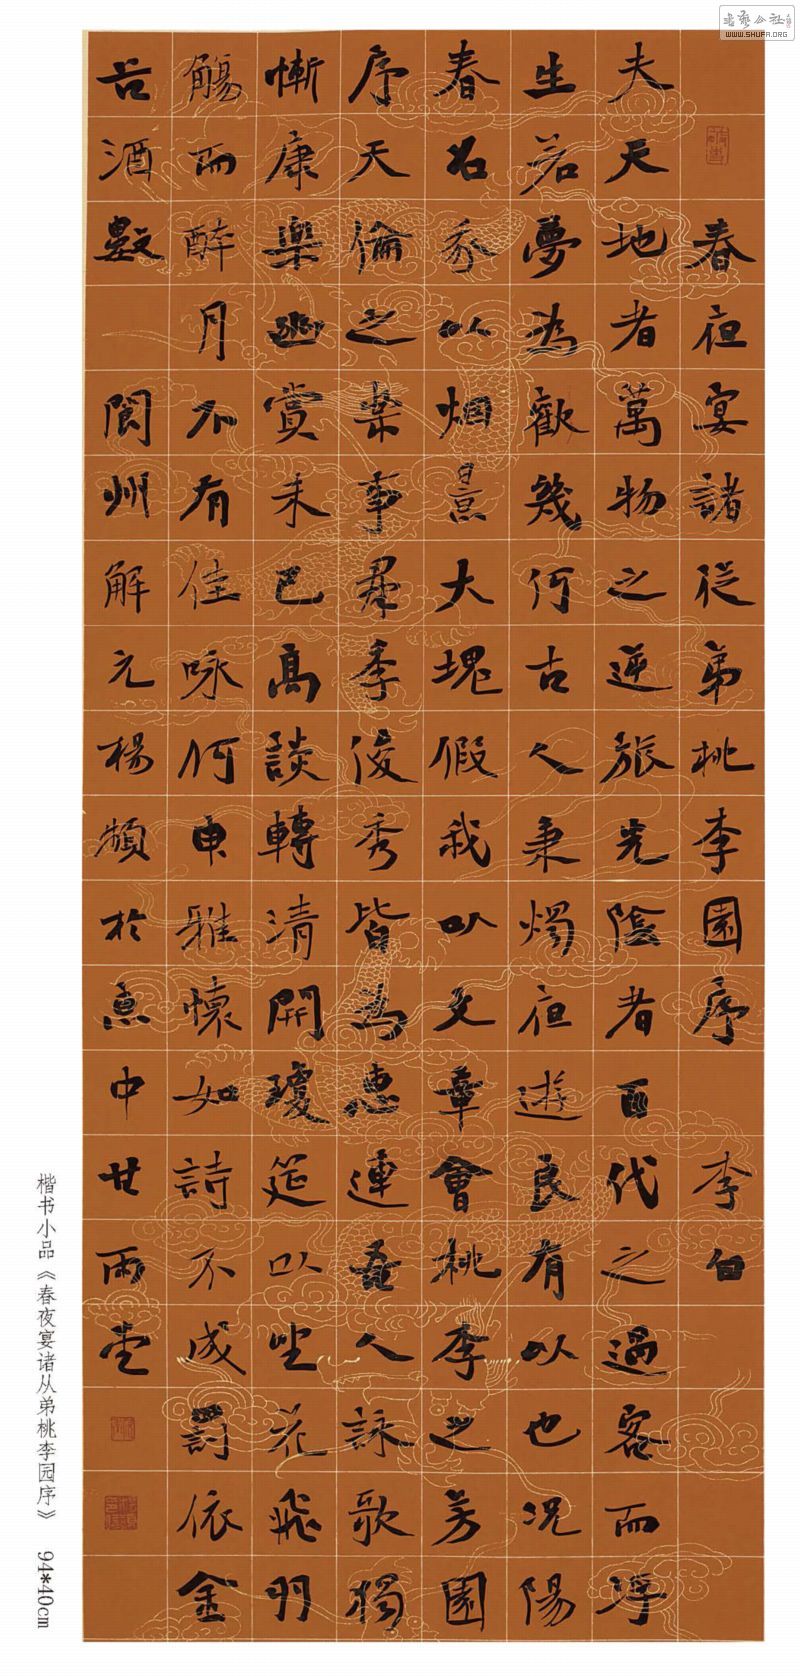 春夜宴諸從弟桃李園序 李白
夫天地者萬物之逆旅光陰者百代之過客而浮
生若夢為歡幾何古人秉燭夜遊良有以也況陽
春召我以烟景大塊假我以文章會桃李之芳園
序天倫之樂事羣季俊秀皆為惠連吾人詠歌獨
慚康樂幽賞未已高談轉清開瓊筵以坐花飛羽
觴而醉月不有佳咏何申雅懷如詩不成罰依金
谷酒數 閬州解元楊頻於中廿雨堂
楷书小品《春夜宴诸从弟桃李园序》 94*40cm
書藝公社
WWW.SHUFA.ORG